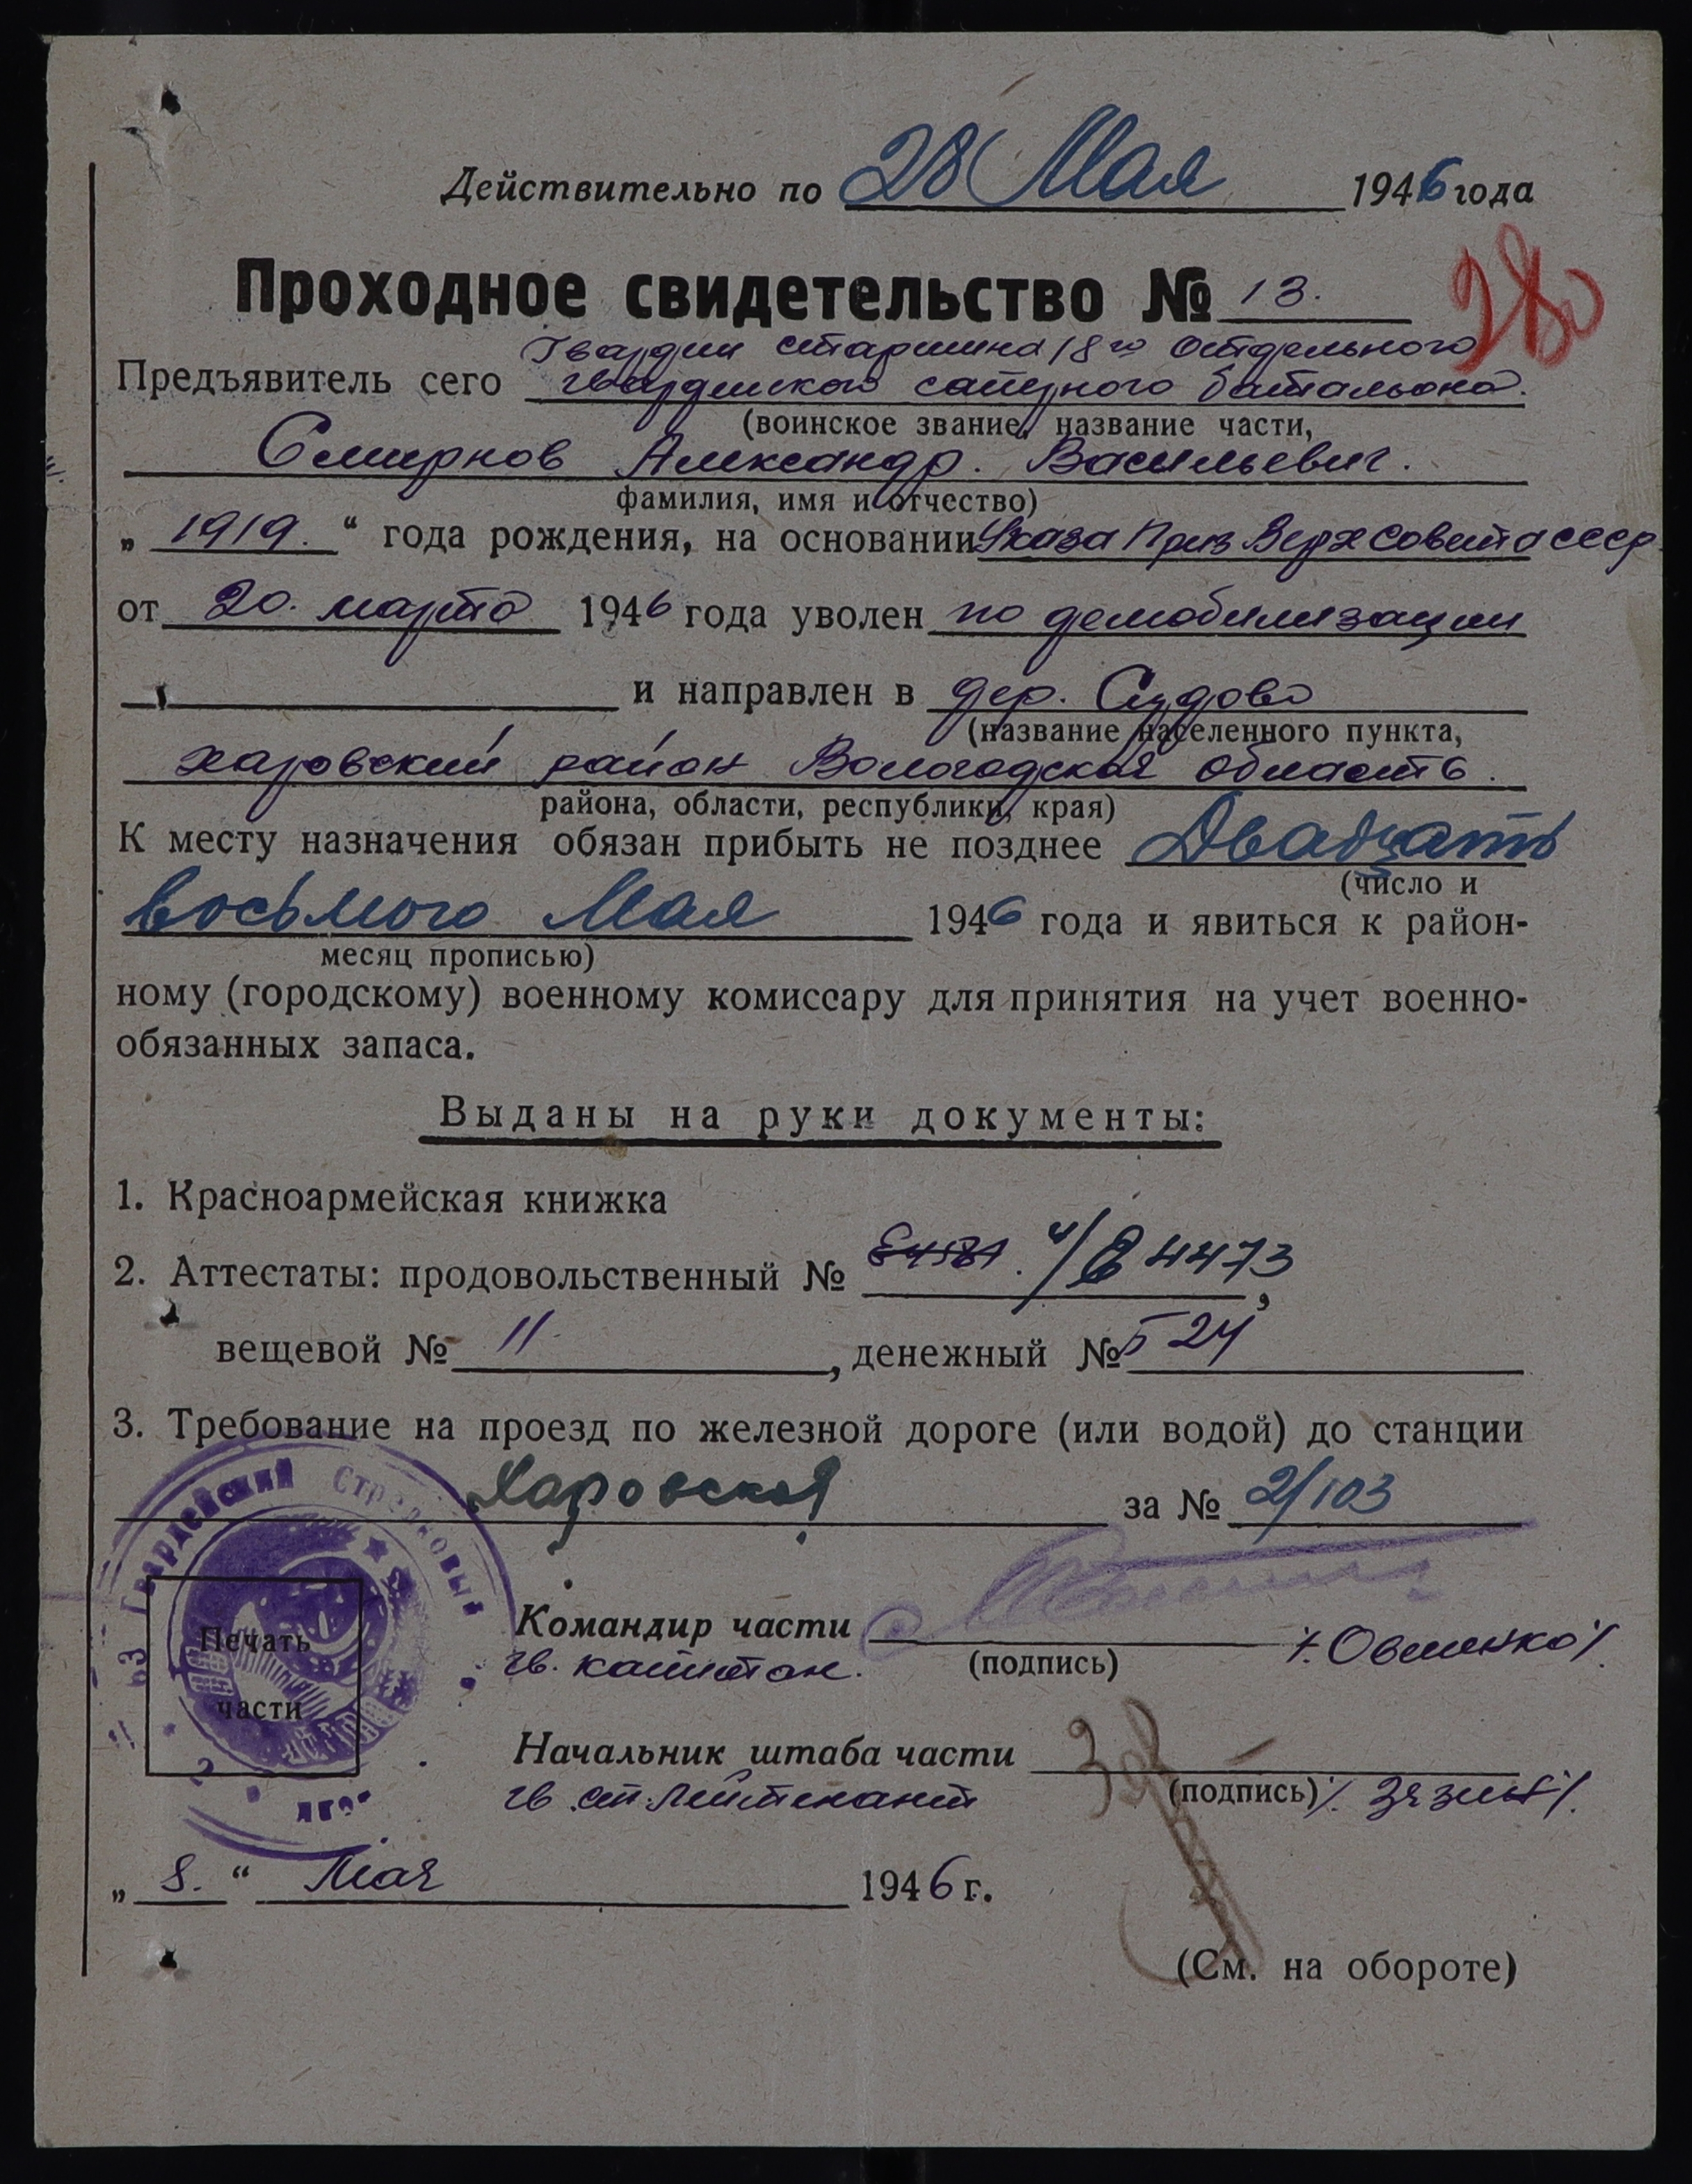 Действительно по 28 Мая 1946 года
Проходное свидетельство № 13.
280
Гвардии старшина 18го Отдельного
Предъявитель сего гвардейского саперного батальона.
(воинское звание, название части,
Смирнов Александр. Васильевич.
фамилия, имя и отчество)
„ 1919. “ года рождения, на основании Указа През Верх Совета СССР
от 20. марта 1946 года уволен по демобилизации
и направлен в дер. Судово
(название населенного пункта,
харовский район Вологодская область.
района, области, республики, края)
К месту назначения обязан прибыть не позднее Двадцать
(число и
восьмого Мая 1946 года и явиться к район-
месяц прописью)
ному (городскому) военному комиссару для принятия на учет военно-
обязанных запаса.
Выданы на руки документы:
1. Красноармейская книжка
2. Аттестаты: продовольственный № 4473,
вещевой № 11, денежный № 24
3. Требование на проезд по железной дороге (или водой) до станции
Харовская за № 2/103
63 Гвардейский Стрелковый
Печать
части
Командир части /Овсиенко/.
гв. капитан. (подпись)
Начальник штаба части
гв. ст. лейтенант (подпись)
„ 8. “ Мая 1946 г.
(См. на обороте)